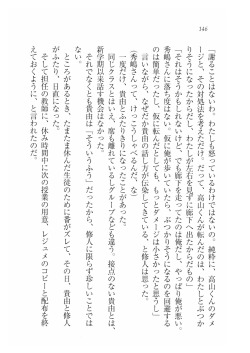 346
「謝ることはないわ。わたしも感じているわけではないの。純粋に、高山くんのダメ
ージと、その対処法を考えてくれればいいわ。高山くんが転んだのは、わたしとぶつか
りそうになったからだし、わたしが左右を見ずに廊下へ出てきたせいだわ」
「それはそうかもしれないけど、でも廊下を走ってたのは俺だし、やっぱり俺が悪い。
秀嶋さんに落ち度はない。仮に俺が歩いていたら、ぶつかりそうになるのを回避する
か、仮に回避できずに転んだとしても、もっとダメージは小さかったと思うし」
言いながら、なぜだか貴由の話し方が伝染してきている、と修人は思った。
(秀嶋さんって、けっこうしゃべるんだ、な)
一度だけ、貴由とふたりきりになったことがあった。
同じクラスとはいえ、席も離れているしグループなども違う。接点のない貴由とは、
新学期以来話す機会はなかった。
それでなくとも貴由は「そういうふう」だったから、修人に限らず珍しいことでは
なかったのだが。
ところがあるとき、たまたま休んだ生徒のために番がズレて、その日、貴由と修人
がふたり、日直になった。
そして担任の教師に、休み時間中に次の授業の用意、レジュメのコピーと配布を終
えておくように、と言われたのだ。